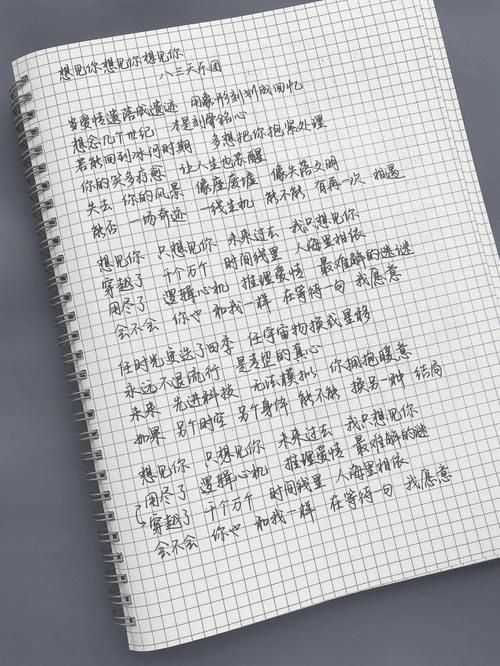 想见你想见你想见你
八三夭乐团
当爱情遗落成遗迹 用象形刻划成回忆
想念几个世纪 才是刻骨铭心
若能回到冰河时期 多想把你抱紧处理
你的笑多疗愈 让人生也苏醒
失去 你的风景 像座废墟 像失落文明
能否 一场奇迹 一线生机 能不能 有再一次 相遇
想见你 只想见你 未来过去 我只想见你
穿越了 千个万个 时间线里 人海里相依
用尽了 逻辑心机 推理爱情 最难解的谜
会不会 你也 和我一样 在等待一句 我愿意
任时光更迭了四季 任宇宙物换或星移
永远不退流行 是青涩的真心
未来 先进科技 无法模拟 你拥抱暖意
如果 另个时空 另个身体 能不能 换另一种 结局
想见你 只想见你 未来过去 我只想见你
用尽了 逻辑心机 推理爱情 最难解的谜
穿越了 千个万个 时间线里 人海里相依
会不会 你也 和我一样 在等待一句 我愿意